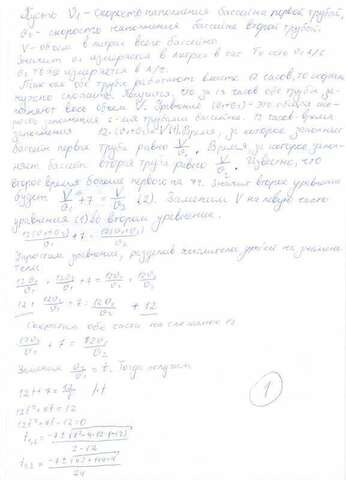 Пусть υ₁ - скорость наполнения бассейна первой трубой,
υ₂ - скорость наполнения бассейна второй трубой.
V - объем в литрах всего бассейна.
Значит υ₁ измеряется в литрах в час. То есть υ₁ л/ч
υ₂ тоже измеряется в л/ч.
Так как обе трубы работают вместе 12 часов, то
Значит, что за 12 часов обе трубы за-
полняют весь объем V. Уравнение (υ₁+υ₂) - это общая ско-
рость заполнения 2-мя трубами бассейна. 12 часов - время
заполнения 12·(υ₁+υ₂)=V (1) Время, за которое заполнит
бассейн первая труба равно V/υ₁. Время, за которое запол-
няет бассейн вторая труба равно V/υ₂. Известно, что
второе время больше первого на 7 ч. Значит второе уравнение
будет V/υ₁ + 7 = V/υ₂ (2). Заменим V на левую часть
уравнения (1) во втором уравнение.
12(υ₁+υ₂)/υ₁ + 7 = 12(υ₁+υ₂)/υ₂
Упростим уравнение, разделив числитель дробей на знамена-
тели.
12υ₁/υ₁ + 12υ₂/υ₁ + 7 = 12υ₁/υ₂ + 12υ₂/υ₂
12 + 12υ₂/υ₁ + 7 = 12υ₁/υ₂ + 12
Сократим обе части на слагаемое 12
12υ₂/υ₁ + 7 = 12υ₁/υ₂
Замена υ₂/υ₁ = t. Тогда получим
12t+7=12/t |·t
12t²+7t=12
12t²+7t-12=0
t₁,₂ = -7±√(7²-4·12·(-12))/2·12
t₁,₂ = /24
1